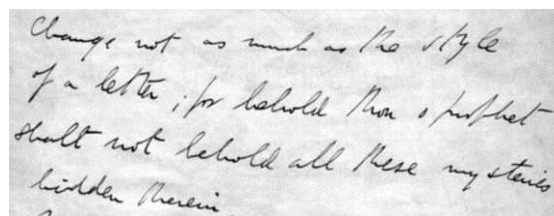 Change not as much as the style
of a letter; for behold thou o prophet
shalt not behold all these mysteries
hidden therein.